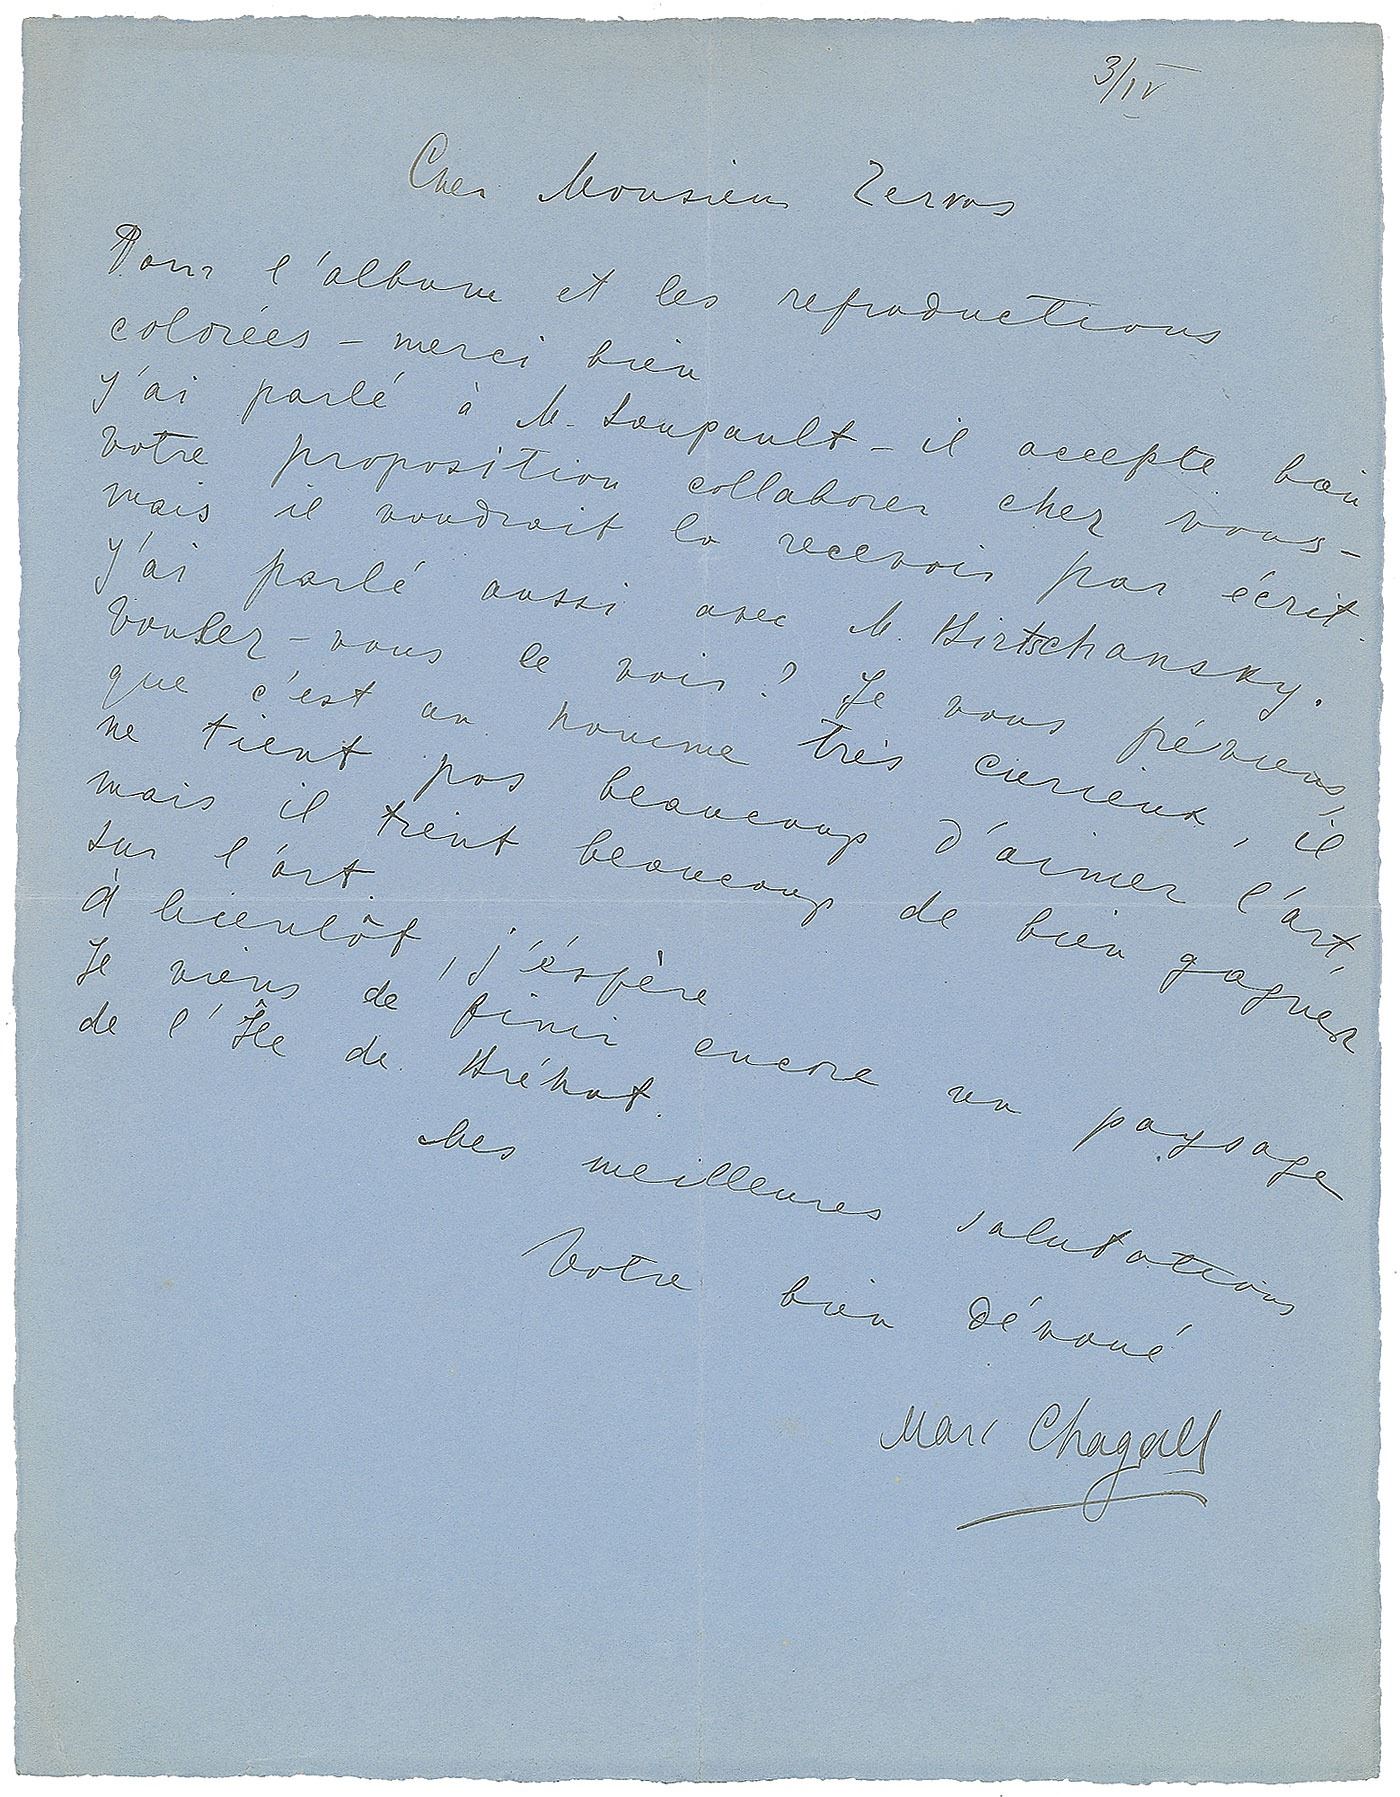 3/IV
Cher Monsieur Zervos
Pour l'album et les reproductions
colorées – merci bien
J'ai parlé à M. Soupault – il accepte bien
votre proposition collaborer chez vous –
mais il voudrait la recevoir par écrit.
J'ai parlé aussi avec M. Hirtschansky.
Voulez-vous le voir? Je vous préviens,
que c'est un homme très curieux, il
ne tient pas beaucoup d'aimer l'art,
mais il tient beaucoup de bien gagner
sur l'art.
À bientôt, j'éspère
Je viens de finir encore un paysage
de l'Île de Bréhat.
Mes meilleures salutations
Votre bien dévoué
Marc Chagall